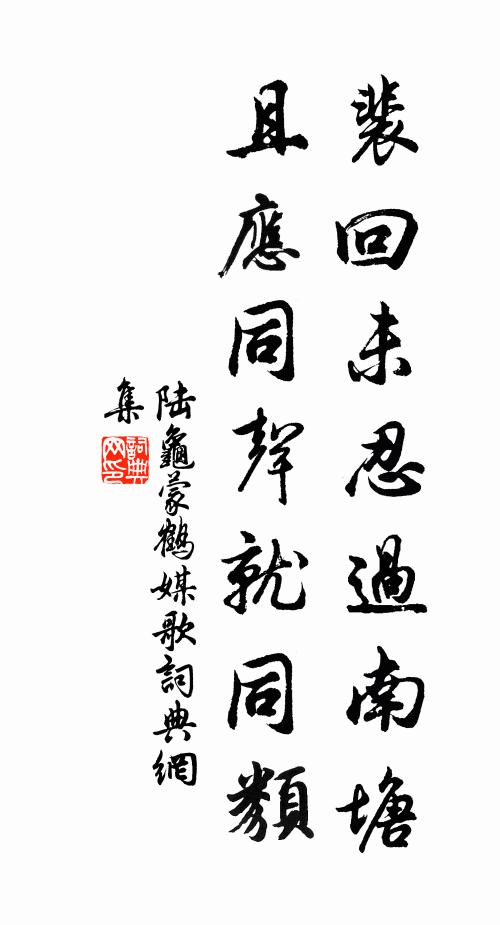 裴回未忍過南塘
且應同聲就同類
陸龜蒙鶴媒歌詞典網
集
詞典網印